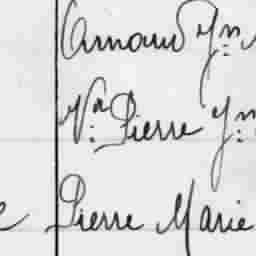 Arnaud Jn
Vn Pierre Jn
Pierre Marie